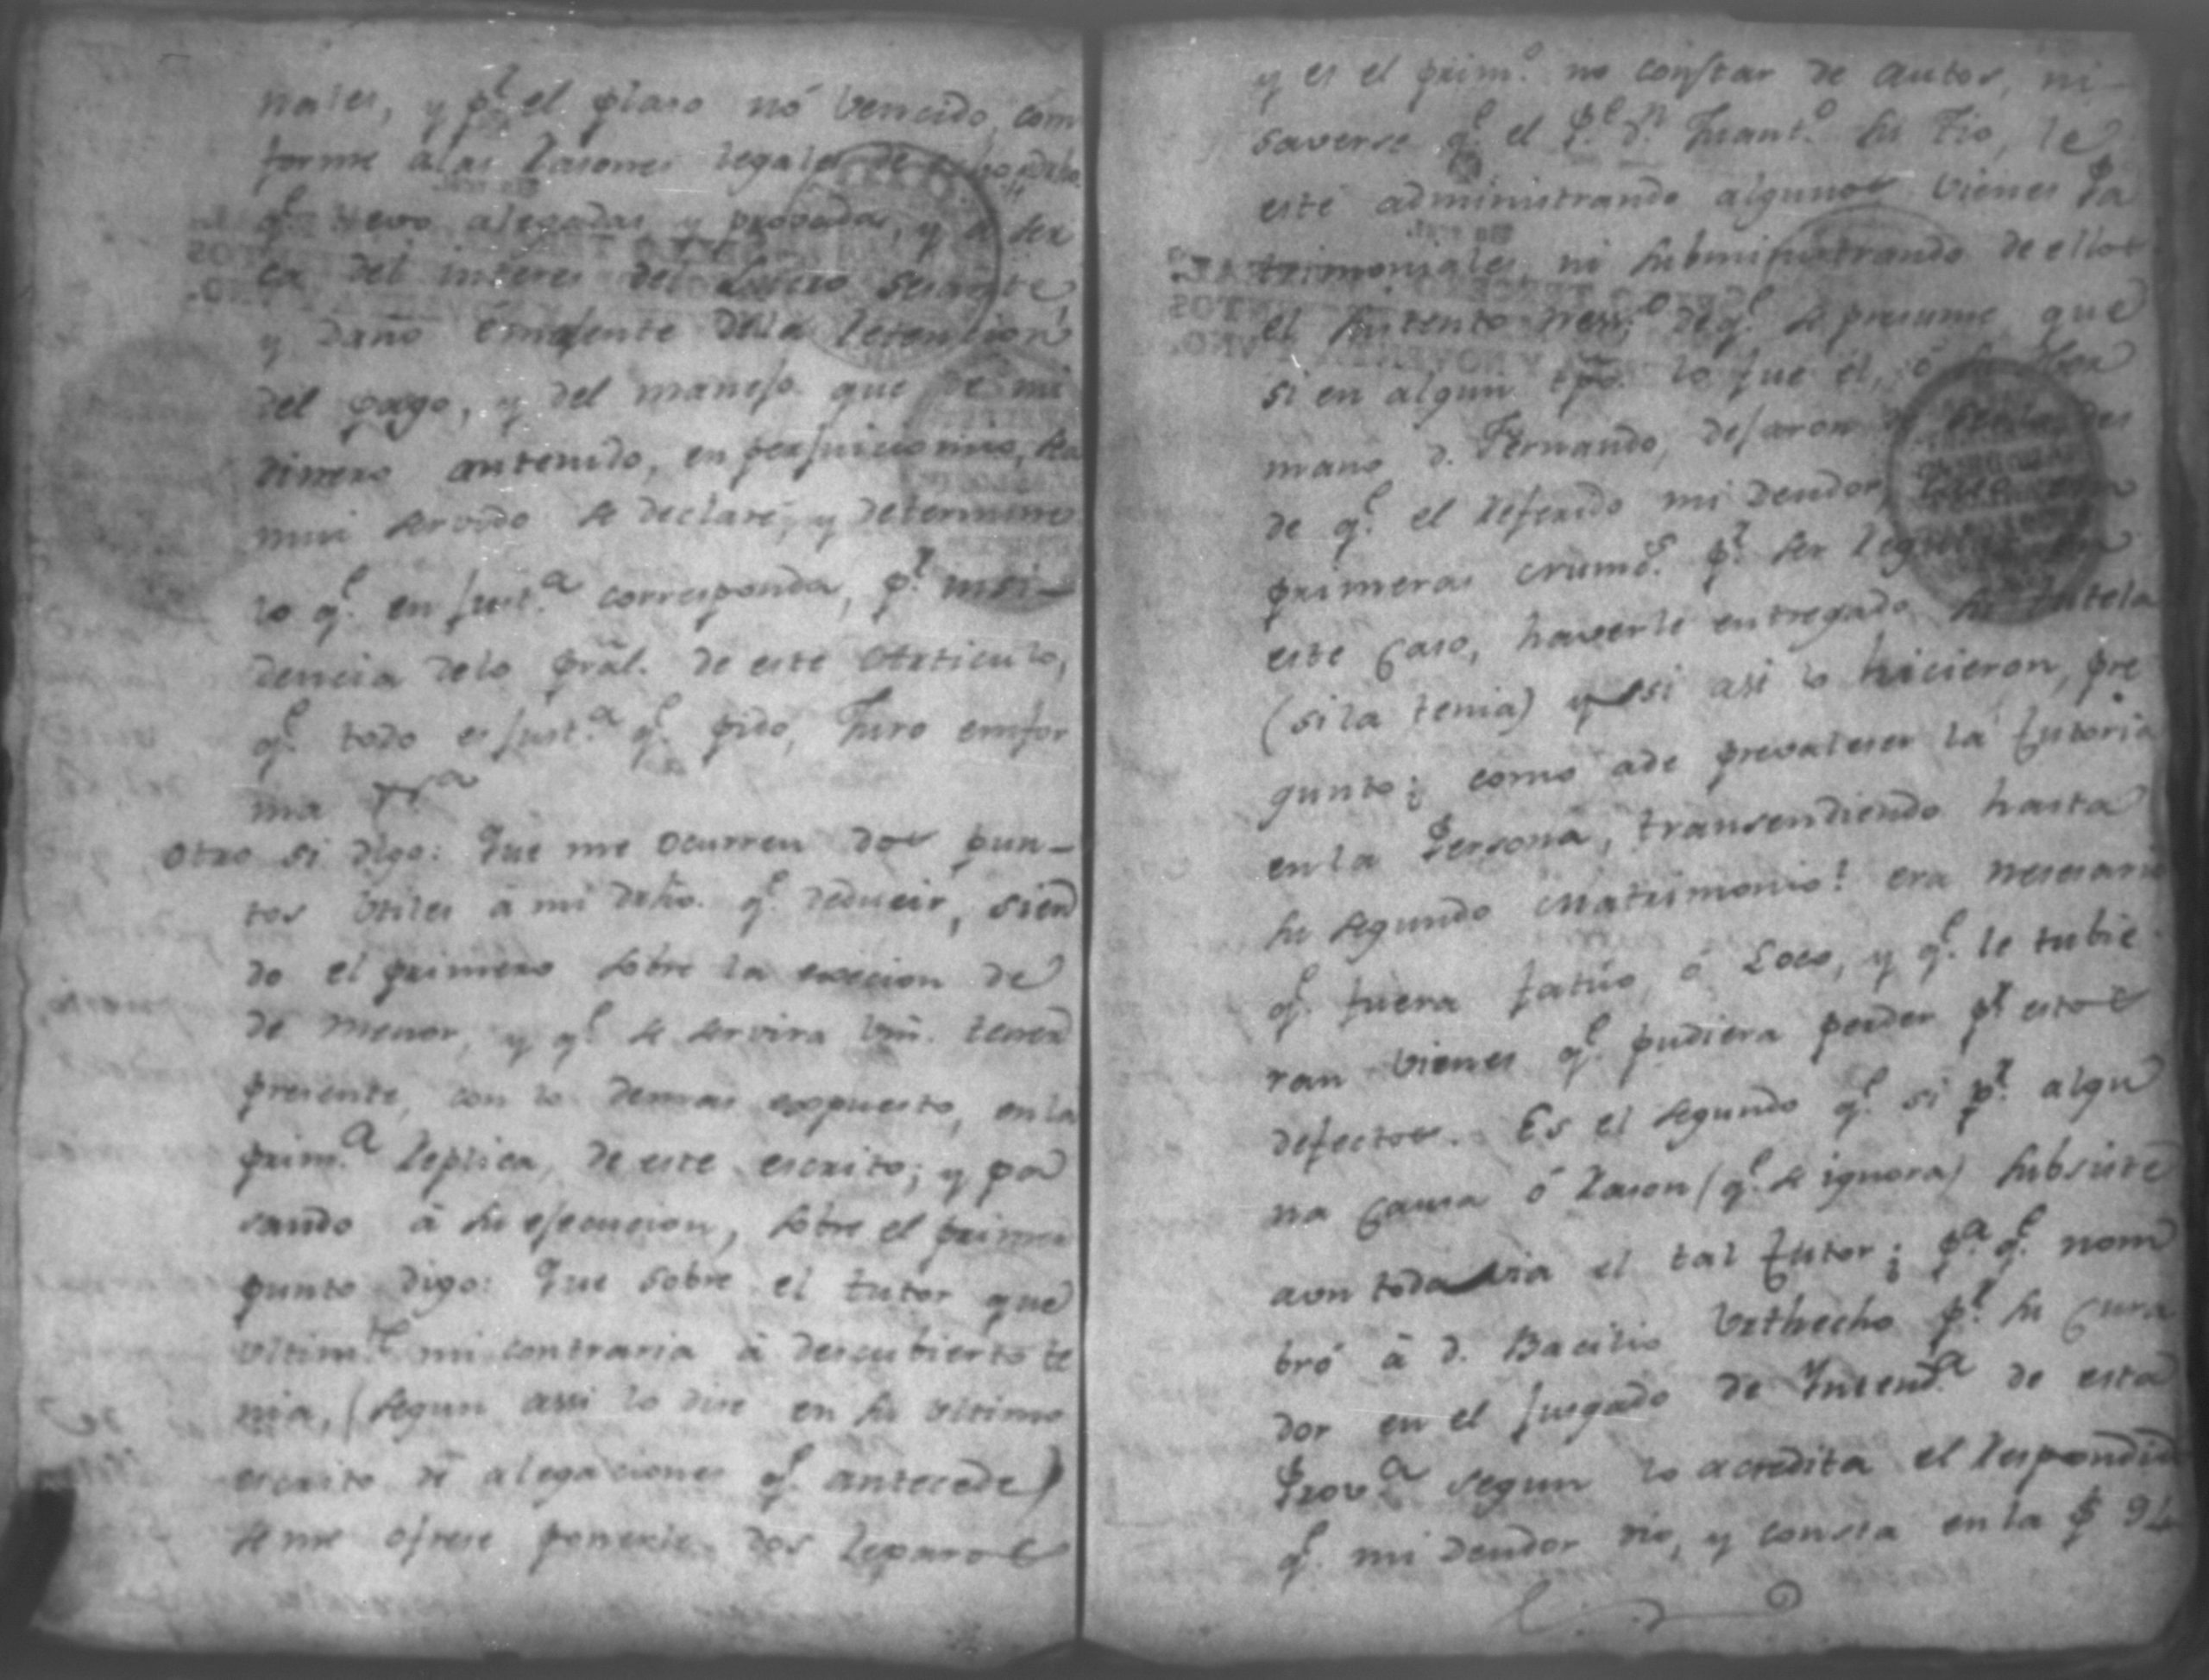 nales, y p.r el plaso nó vencido, com
forme alas rasones legales de
q.e llevo alegadas, y provadas, y a ser
ca del interes del Lucro sesante,
y daño emergente dela retencion
del pago, y del manejo que de mi
dinero antenido, en perjuicio mio, sea
mui servido se declare, y determine
lo q.e en just.a corresponda, p.r insi-
dencia delo pral. de este Articulo,
q.e todo es just.a q.e pido, Juro enfor
ma
Otro si digo: Que me ocurren dos pun-
tos utiles á mi dro. q.e deducir, sien
do el primero sobre la execion de
de menor, y q.e se servira Vm. tener
presente, con lo demas expuesto, enla
prim.a replica, de este escrito; y pa
sando á su ejecucion, sobre el primer
punto digo: Que sobre el tutor que
ultim.te mi contraria á descubierto te
nia, (segun assi lo dise en su ultimo
escrito de alegaciones q.e antecede)
seme ofrese ponerle dos reparos
y es el prim.o no constar de autos, ni-
saverse q.e el P.e d.n Juan Ant.o su Tio, le
esté administrando algunos vienes Pa
trimoniales, ni subministrando de ellos
el sustento ness.o de q.e se presume que
si en algun tpo. lo fue él, ó su Her
mano d. Fernando, dejaron
de q.e el referido mi Deudor,
primeras crumd.s p.r ser
este caso, haverle entregado su tutela
(sila tenia) y si asi lo hicieron, pre
gunto; como ade prevaleser la tutoria
enla Persona, transendiendo hasta
su segundo Matrimonio? era nesesario
q.e fuera fatúo, ó Loco, y q.e le tubie
ran vienes q.e pudiera perder p.r estos
defectos. Es el segundo q.e si p.r algu
na causa ó rason (q.e se ignora) subsiste
aun todavia el tal tutor; p.a q.e nom
bró á d. Bacilio Urthecho p.r su cura
dor en el jusgado de Intend.a de esta
Prov.a segun lo acredita el respondido
q.e mi deudor dio, y consta enla